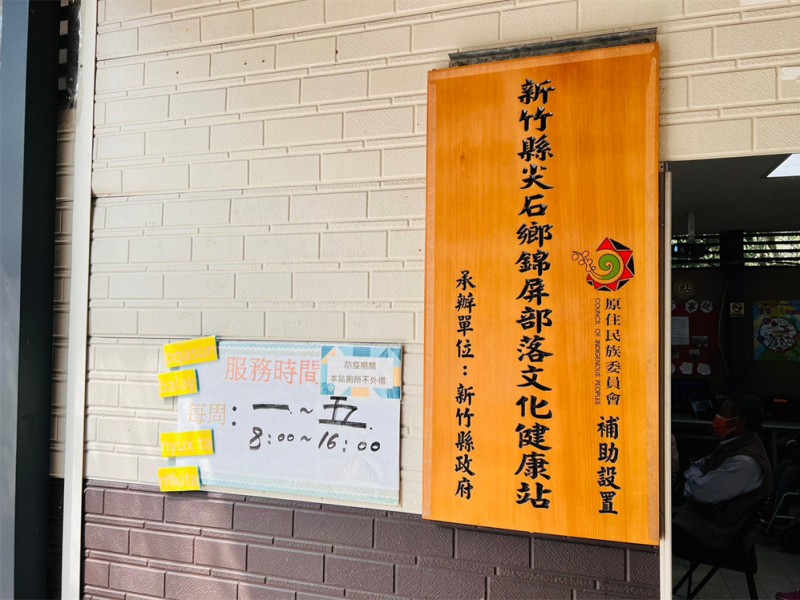 新竹縣尖石鄉錦屏部落文化健康站
原住民族委員會
COUNCIL OF INDIGENOUS PEOPLES
補助設置
承辦單位：新竹縣政府
服務時間
防疫期間
本站廁所不外借
每周：一～五
8：00～16：00